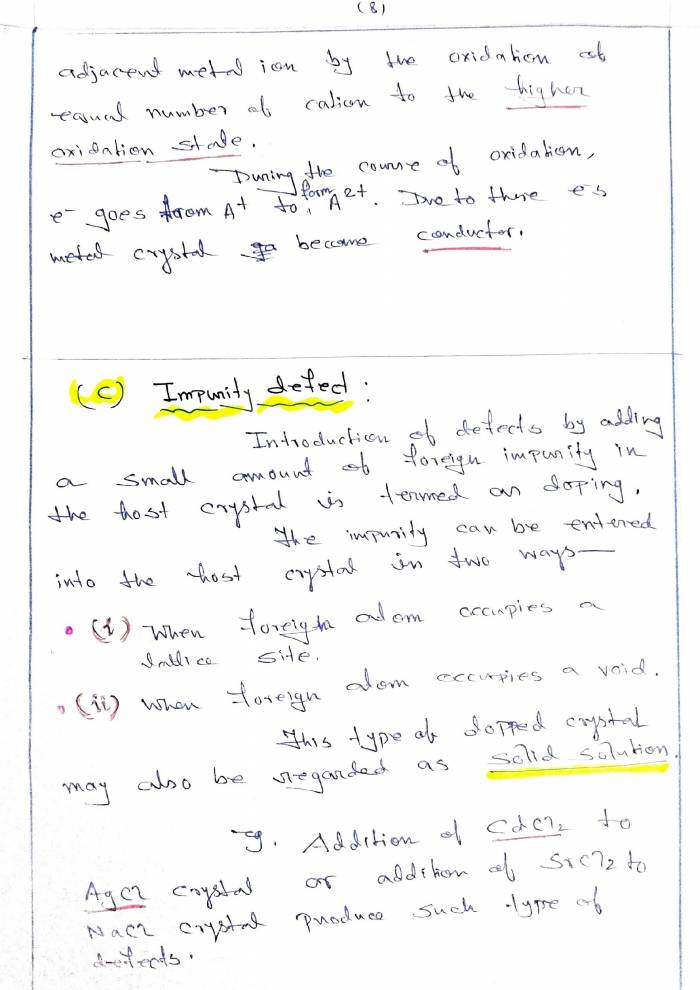 (8)
adjacent metal ion by the oxidation of
equal number of cation to the higher
oxidation state.
During the course of oxidation,
e⁻ goes from A⁺ to form A²⁺. Due to there es
metal crystal become conductor.
(c) Impurity defect :
Introduction of defects by adding
a small amount of foreign impurity in
the host crystal is termed as doping.
The impurity can be entered
into the host crystal in two ways—
(i) When foreign atom occupies a
lattice site.
(ii) When foreign atom occupies a void.
This type of dopped crystal
may also be regarded as solid solution.
eg. Addition of CdCl₂ to
AgCl crystal or addition of SrCl₂ to
NaCl crystal produce such type of
defects.